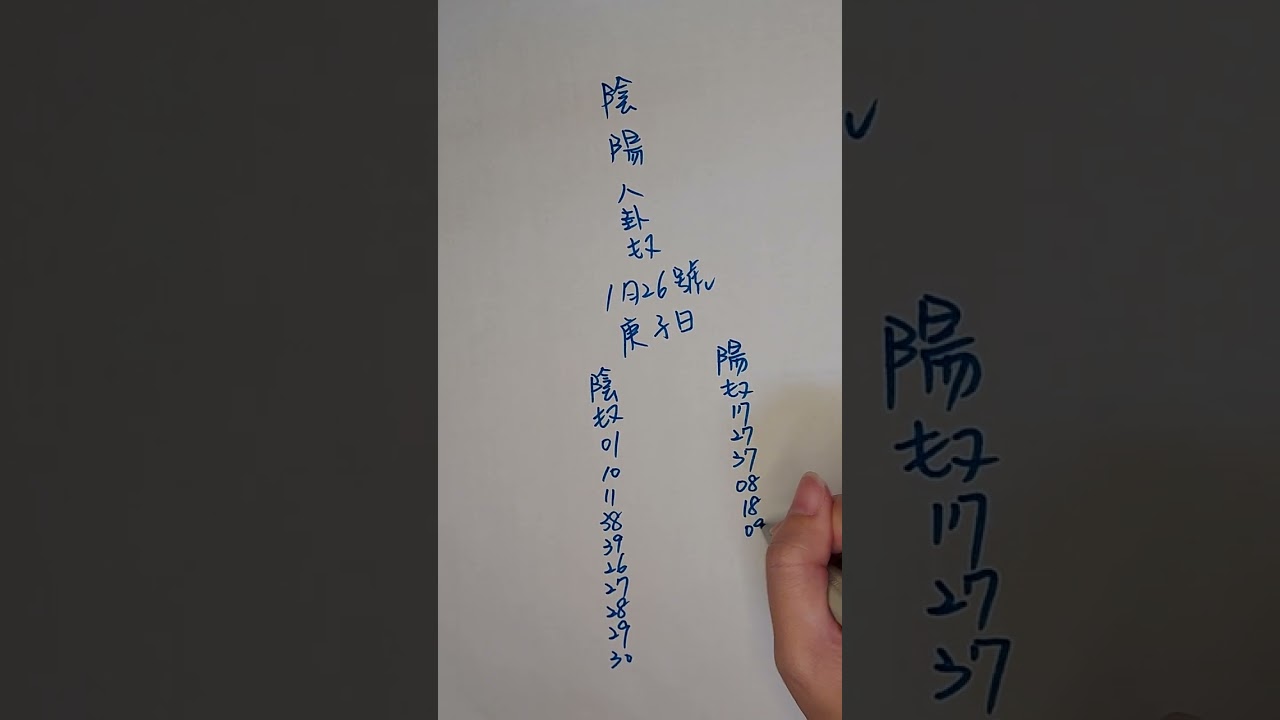 陰陽八卦
1月26號
庚子日
陰
01
10
11
38
39
26
27
28
29
30
陽
17
27
37
08
18
09
陽
17
27
37